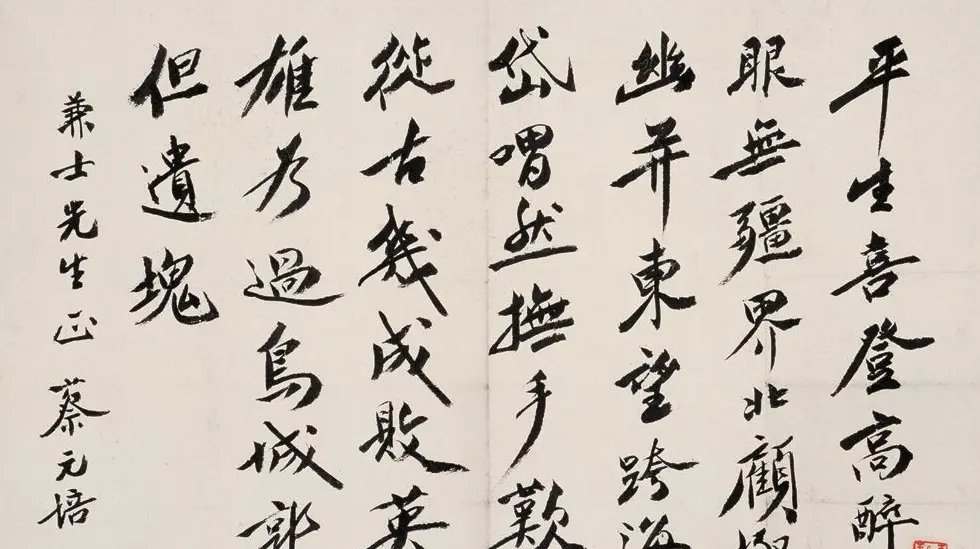 平生喜登高醉
眼無疆界北顧
幽并東望跨海
岱喟然撫手歎
從古幾成敗英
雄為過鳥城郭
但遺塊
兼士先生正 蔡元培